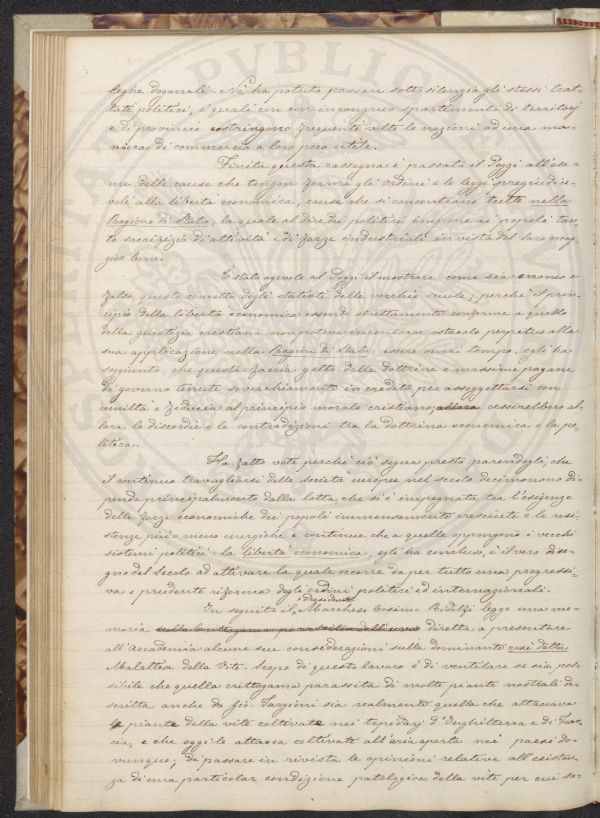 leghe doganali. Nè ha potuto passare sotto silenzio gli stessi trat-
tati politici, i quali con un incongruo spartimento di territorj
e di provincie costringono frequenti volte le nazioni ad una ma-
niera di commercio a loro poco utile.
Finita questa rassegna è passato il Poggi all'esa-
me delle cause che tengon fermi gli ordini e le leggi pregiudice-
voli alla libertà economica, cause che si concentrano tutte nella
Ragione di Stato, la quale al dire dei politici impone ai popoli tan-
to sacrifizio di attività e di forze industriali in vista del loro mag-
gior bene.
È stato agevole al Poggi il mostrare come sia erroneo e
falso questo concetto degli statisti delle vecchie scuole, perchè il prin-
cipio della libertà economica essendo strettamente conforme a quello
della giustizia cristiana non poteva incontrare ostacolo perpetuo alla
sua applicazione nella Ragione di Stato; essere omai tempo, egli ha
soggiunto, che questa faccia getto delle dottrine e massime pagane
di governo tenute soverchiamente in credito per assoggettarsi con
umiltà e fiducia al principio morale cristiano; allora cesserebbero al-
lora le discordie e le contradizioni tra la dottrina economica e la po-
litica.
Ha fatto voti perchè ciò segua presto parendogli, che
il continuo travagliarsi delle società europee nel secolo decimonono di-
penda principalmente dalla lotta che si è impegnata tra l'esigenze
delle forze economiche dei popoli immensamente cresciute e le resi-
stenze più o meno energiche e continue che a quelle oppongono i vecchi
sistemi politici: la libertà economica, egli ha concluso, è il vero biso-
gno del secolo ad attivare la quale occorre da per tutto una progressi-
va e prudente riforma degli ordini politici ed internazionali.
Presidente
In seguito il Marchese Cosimo Ridolfi legge una me-
moria sulla crittogama diretta a presentare
all'Accademia alcune sue considerazioni sulla dominante così detta
Malattia della Vite. Scopo di questo lavoro è di ventilare se sia pos-
sibile che quella crittogama parassita di molte piante nostrali de-
scritta anche da Gio: Targioni sia realmente quella che attaccava
le piante della vite coltivate nei tepidarj d'Inghilterra e di Fran-
cia, e che oggi le attacca coltivate all'aria aperta nei paesi do-
vunque; di passare in rivista le opinioni relative all'esisten-
za di una particolar condizione patologica della vite per cui so-